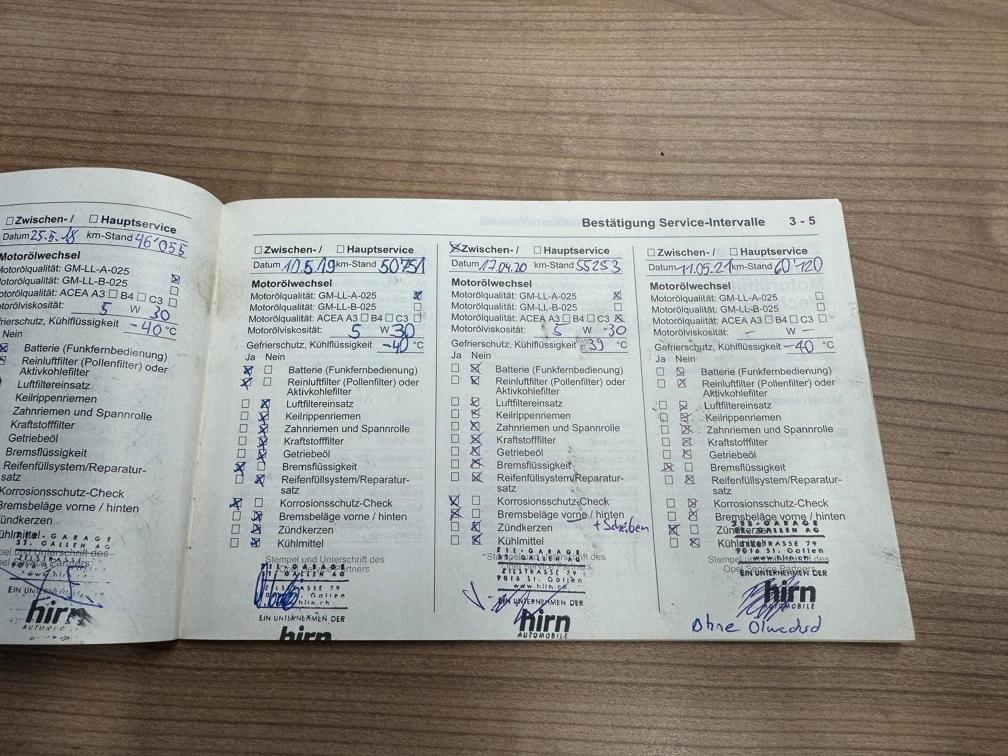 Bestätigung Service-Intervalle 3 - 5
☐ Zwischen- / ☐ Hauptservice
Datum 25.5.18 km-Stand 46'055
Motorölwechsel
Motorölqualität: GM-LL-A-025
Motorölqualität: GM-LL-B-025 ☒
Motorölqualität: ACEA A3 ☐ B4 ☐ C3 ☐
Motorölviskosität: 5 W 30
Gefrierschutz, Kühlflüssigkeit -40 °C
Nein
Batterie (Funkfernbedienung)
Reinluftfilter (Pollenfilter) oder
Aktivkohlefilter
Luftfiltereinsatz
Keilrippenriemen
Zahnriemen und Spannrolle
Kraftstofffilter
Getriebeöl
Bremsflüssigkeit
Reifenfüllsystem/Reparatur-
satz
Korrosionsschutz-Check
Bremsbeläge vorne / hinten
Zündkerzen
Kühlmittel
ST. GALLEN AG
EIN
hirn
☐ Zwischen- / ☐ Hauptservice
Datum 10.5.19 km-Stand 50751
Motorölwechsel
Motorölqualität: GM-LL-A-025 ☒
Motorölqualität: GM-LL-B-025 ☐
Motorölqualität: ACEA A3 ☐ B4 ☐ C3 ☐
Motorölviskosität: 5 W 30
Gefrierschutz, Kühlflüssigkeit -40 °C
Ja Nein
☒ ☐ Batterie (Funkfernbedienung)
☒ ☐ Reinluftfilter (Pollenfilter) oder
Aktivkohlefilter
☐ ☒ Luftfiltereinsatz
☐ ☒ Keilrippenriemen
☐ ☒ Zahnriemen und Spannrolle
☐ ☒ Kraftstofffilter
☐ ☒ Getriebeöl
☒ ☐ Bremsflüssigkeit
☐ ☒ Reifenfüllsystem/Reparatur-
satz
☒ ☐ Korrosionsschutz-Check
☐ ☒ Bremsbeläge vorne / hinten
☐ ☒ Zündkerzen
☐ ☒ Kühlmittel
Stempel und Unterschrift des
ST. GALLEN AG
ZIELSTRASSE 79
EIN UNTERNEHMEN DER
hirn
☒ Zwischen- / ☐ Hauptservice
Datum 17.04.20 km-Stand 55253
Motorölwechsel
Motorölqualität: GM-LL-A-025 ☒
Motorölqualität: GM-LL-B-025 ☐
Motorölqualität: ACEA A3 ☐ B4 ☐ C3 ☒
Motorölviskosität: 5 W -30
Gefrierschutz, Kühlflüssigkeit -39 °C
Ja Nein
☐ ☒ Batterie (Funkfernbedienung)
☐ ☒ Reinluftfilter (Pollenfilter) oder
Aktivkohlefilter
☐ ☒ Luftfiltereinsatz
☐ ☒ Keilrippenriemen
☐ ☒ Zahnriemen und Spannrolle
☐ ☒ Kraftstofffilter
☐ ☒ Getriebeöl
☐ ☒ Bremsflüssigkeit
☐ ☒ Reifenfüllsystem/Reparatur-
satz
☒ ☐ Korrosionsschutz-Check
☒ ☐ Bremsbeläge vorne / hinten
☐ ☒ Zündkerzen + Scheiben
☐ ☒ Kühlmittel
Stempel und Unterschrift des
ZIELSTRASSE 79
9016 St. Gallen
www.hirn.ch
EIN UNTERNEHMEN DER
hirn
AUTOMOBILE
☐ Zwischen- / ☐ Hauptservice
Datum 11.05.21 km-Stand 60'120
Motorölwechsel
Motorölqualität: GM-LL-A-025 ☐
Motorölqualität: GM-LL-B-025 ☐
Motorölqualität: ACEA A3 ☐ B4 ☐ C3 ☐
Motorölviskosität: - W -
Gefrierschutz, Kühlflüssigkeit -40 °C
Ja Nein
☐ ☒ Batterie (Funkfernbedienung)
☐ ☒ Reinluftfilter (Pollenfilter) oder
Aktivkohlefilter
☐ ☒ Luftfiltereinsatz
☐ ☒ Keilrippenriemen
☐ ☒ Zahnriemen und Spannrolle
☐ ☒ Kraftstofffilter
☐ ☒ Getriebeöl
☒ ☐ Bremsflüssigkeit
☐ ☒ Reifenfüllsystem/Reparatur-
satz
☐ ☒ Korrosionsschutz-Check
☐ ☒ Bremsbeläge vorne / hinten
☒ ☐ Zündkerzen
☐ ☒ Kühlmittel
ST. GALLEN AG
ZIELSTRASSE 79
9016 St. Gallen
www.hirn.ch
EIN UNTERNEHMEN DER
hirn
AUTOMOBILE
Ohne Ölwechsel